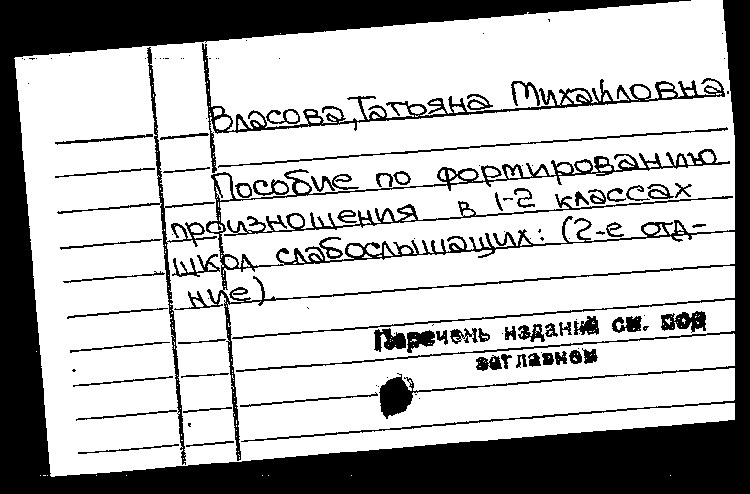 Власова, Татьяна Михайловна.
Пособие по формированию
произношения в 1-2 классах
школ слабослышащих: (2-е отд-
ние).
Перечень изданий см. под
заглавием